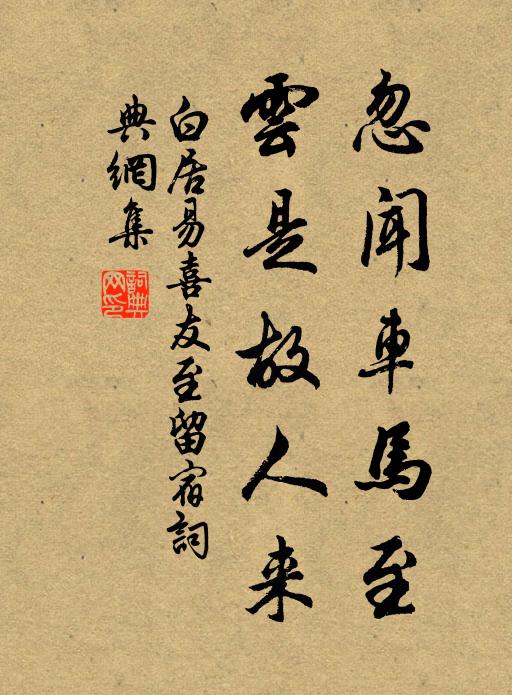 忽聞車馬至
雲是故人来
白居易喜友至留宿詞
典網集
詞典
网印